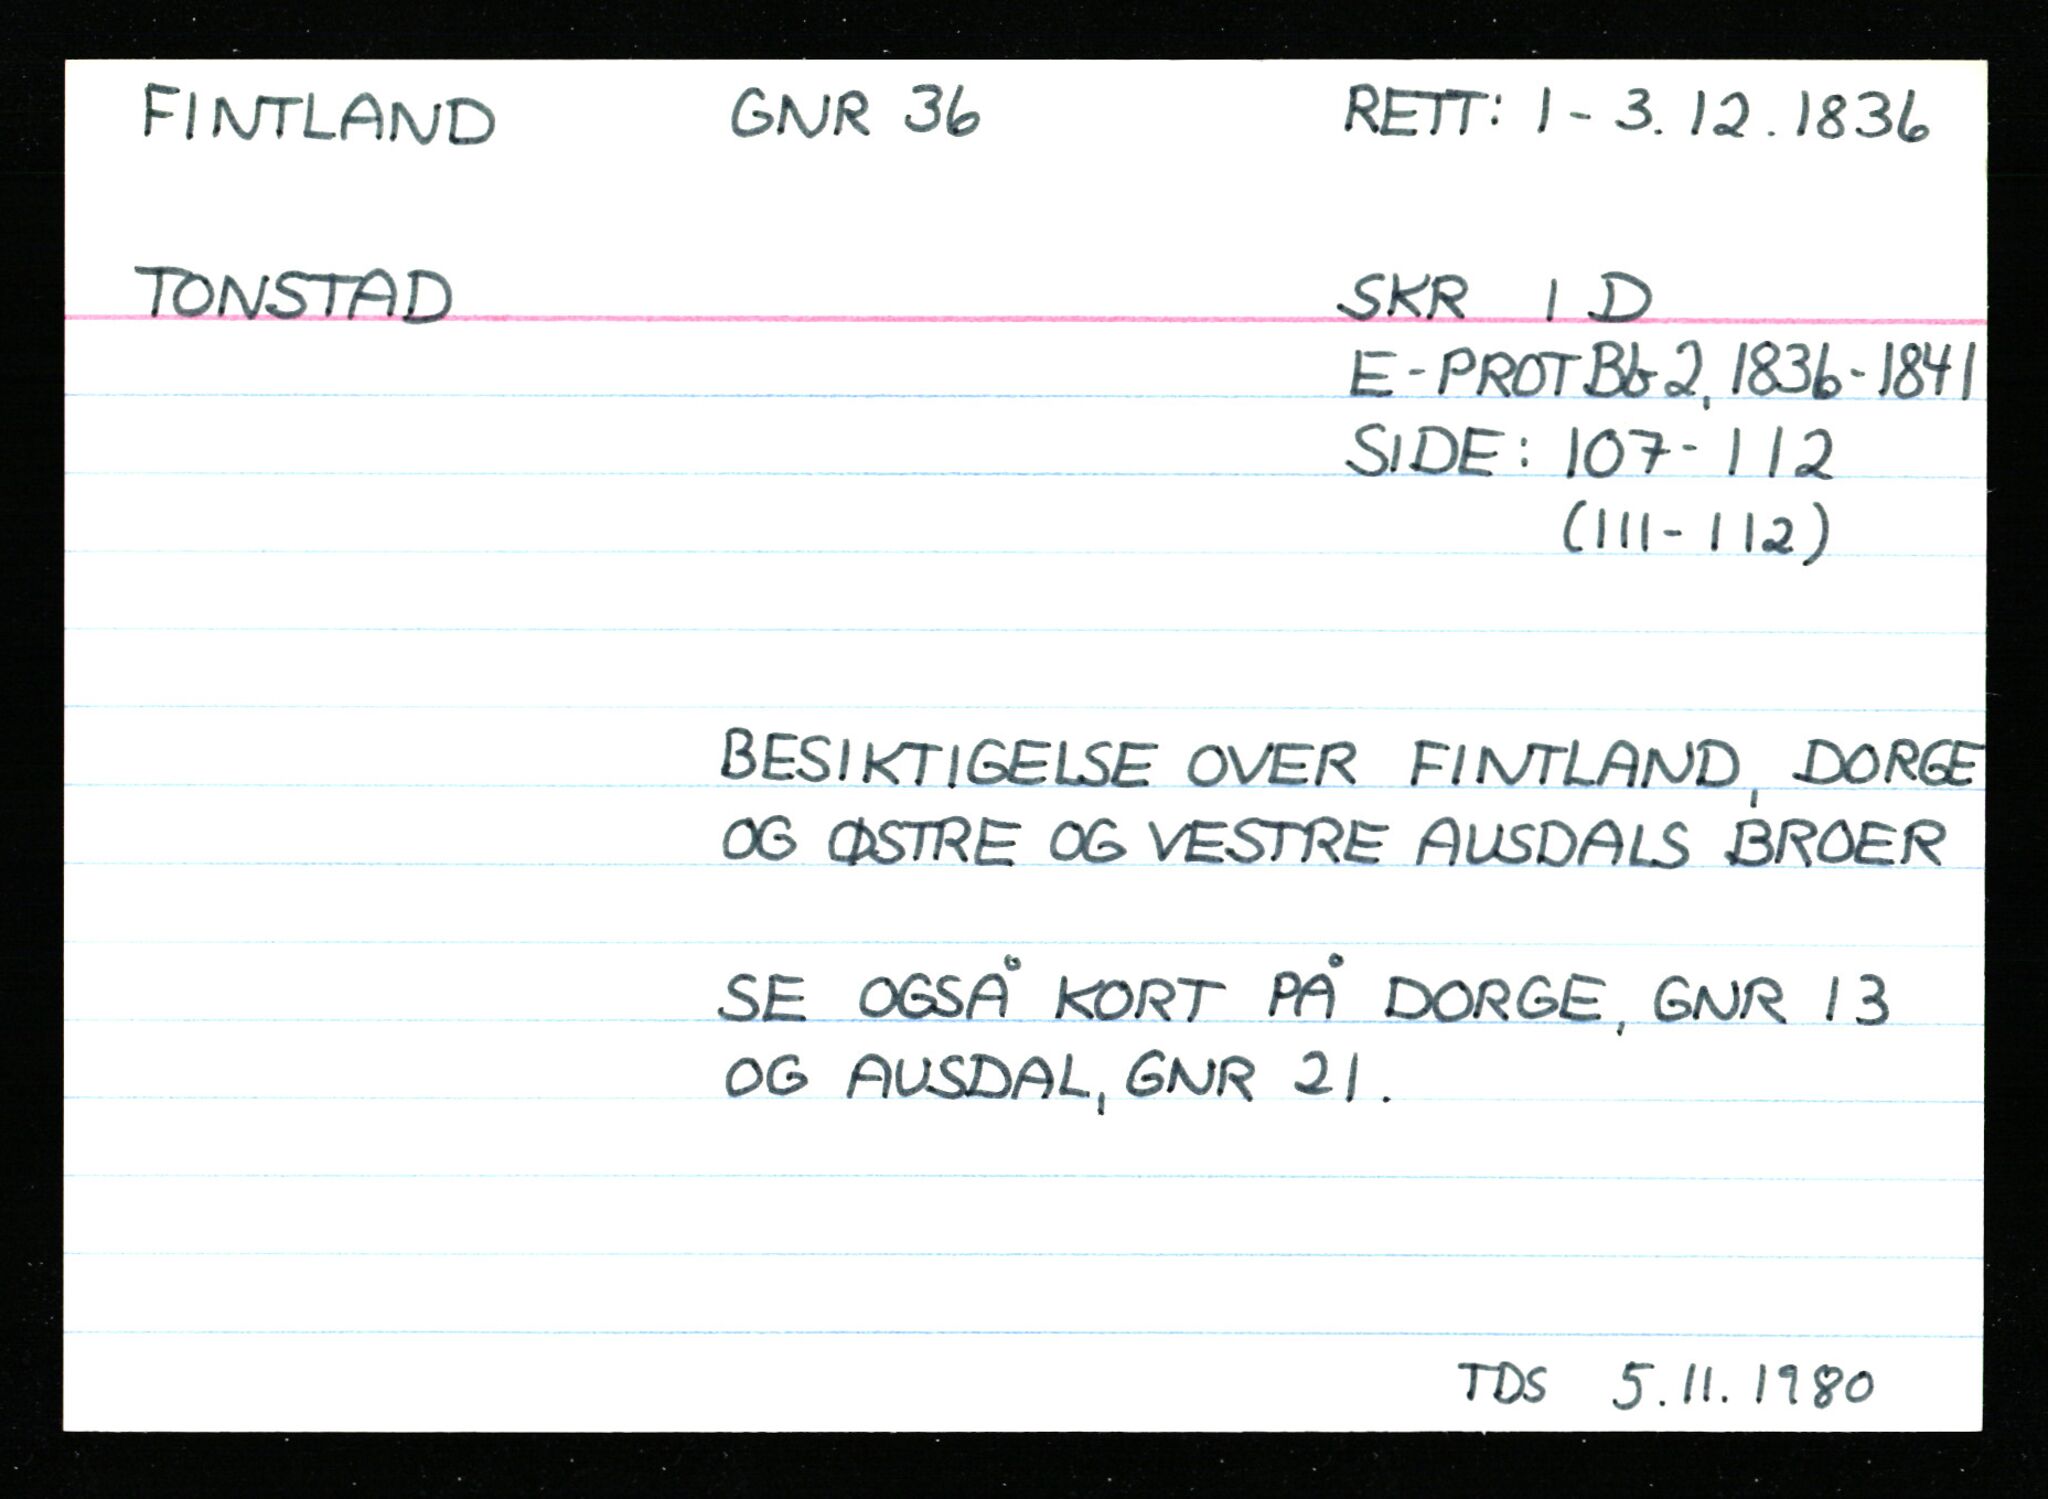 FINTLAND GNR 36 RETT: 1-3.12.1836
TONSTAD SKR 1 D
E-PROT Bb 2, 1836-1841
SIDE: 107-112
(111-112)
BESIKTIGELSE OVER FINTLAND, DORGE
OG ØSTRE OG VESTRE AUSDALS BROER
SE OGSÅ KORT PÅ DORGE, GNR 13
OG AUSDAL, GNR 21.
TDS 5.11.1980